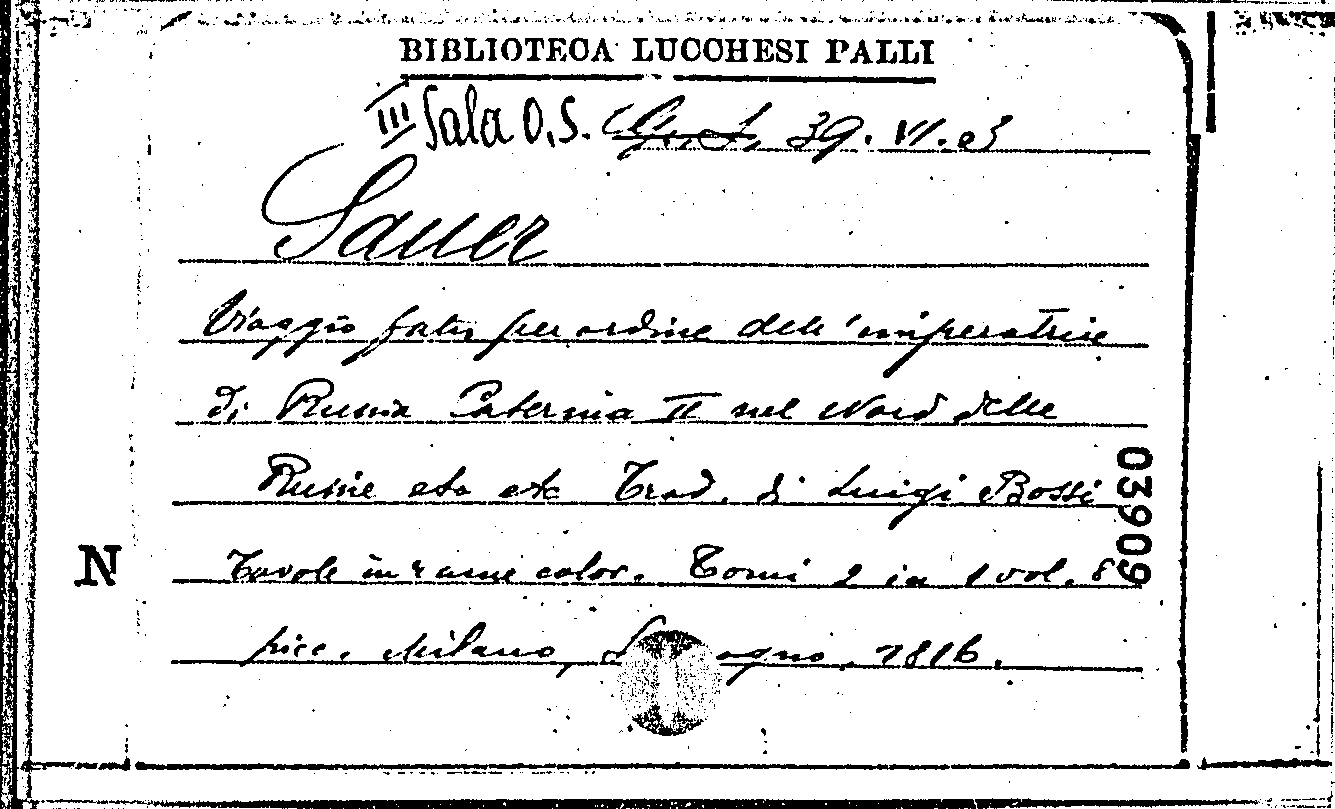 BIBLIOTECA LUCCHESI PALLI
III Sala O.S. G. S. 39. VI. 03
Sauer
Viaggio fatto per ordine dell'imperatrice
di Russia Caterina II nel Nord della
Russia etc etc Trad. di Luigi Bossi
Tavole in rame color. Tomi 2 in 1 vol. 8
picc. Milano, 1816.
03909
N